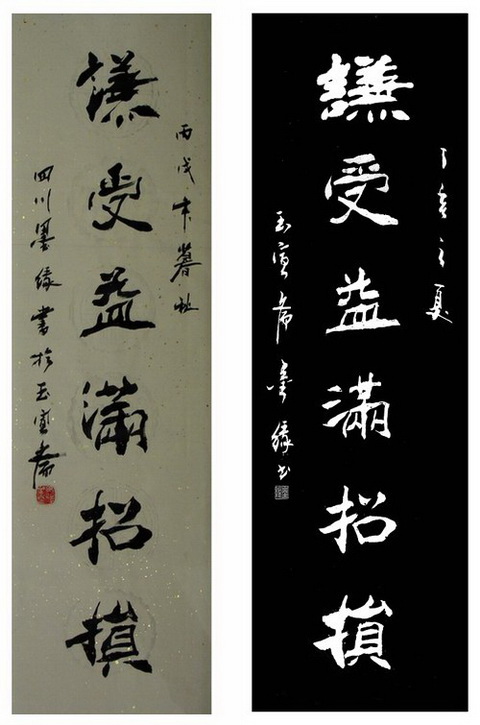 丙戌年暮秋
謙受益滿招損
四川墨缘書於玉斋
丁亥之夏
謙受益滿招損
玉斋墨缘书